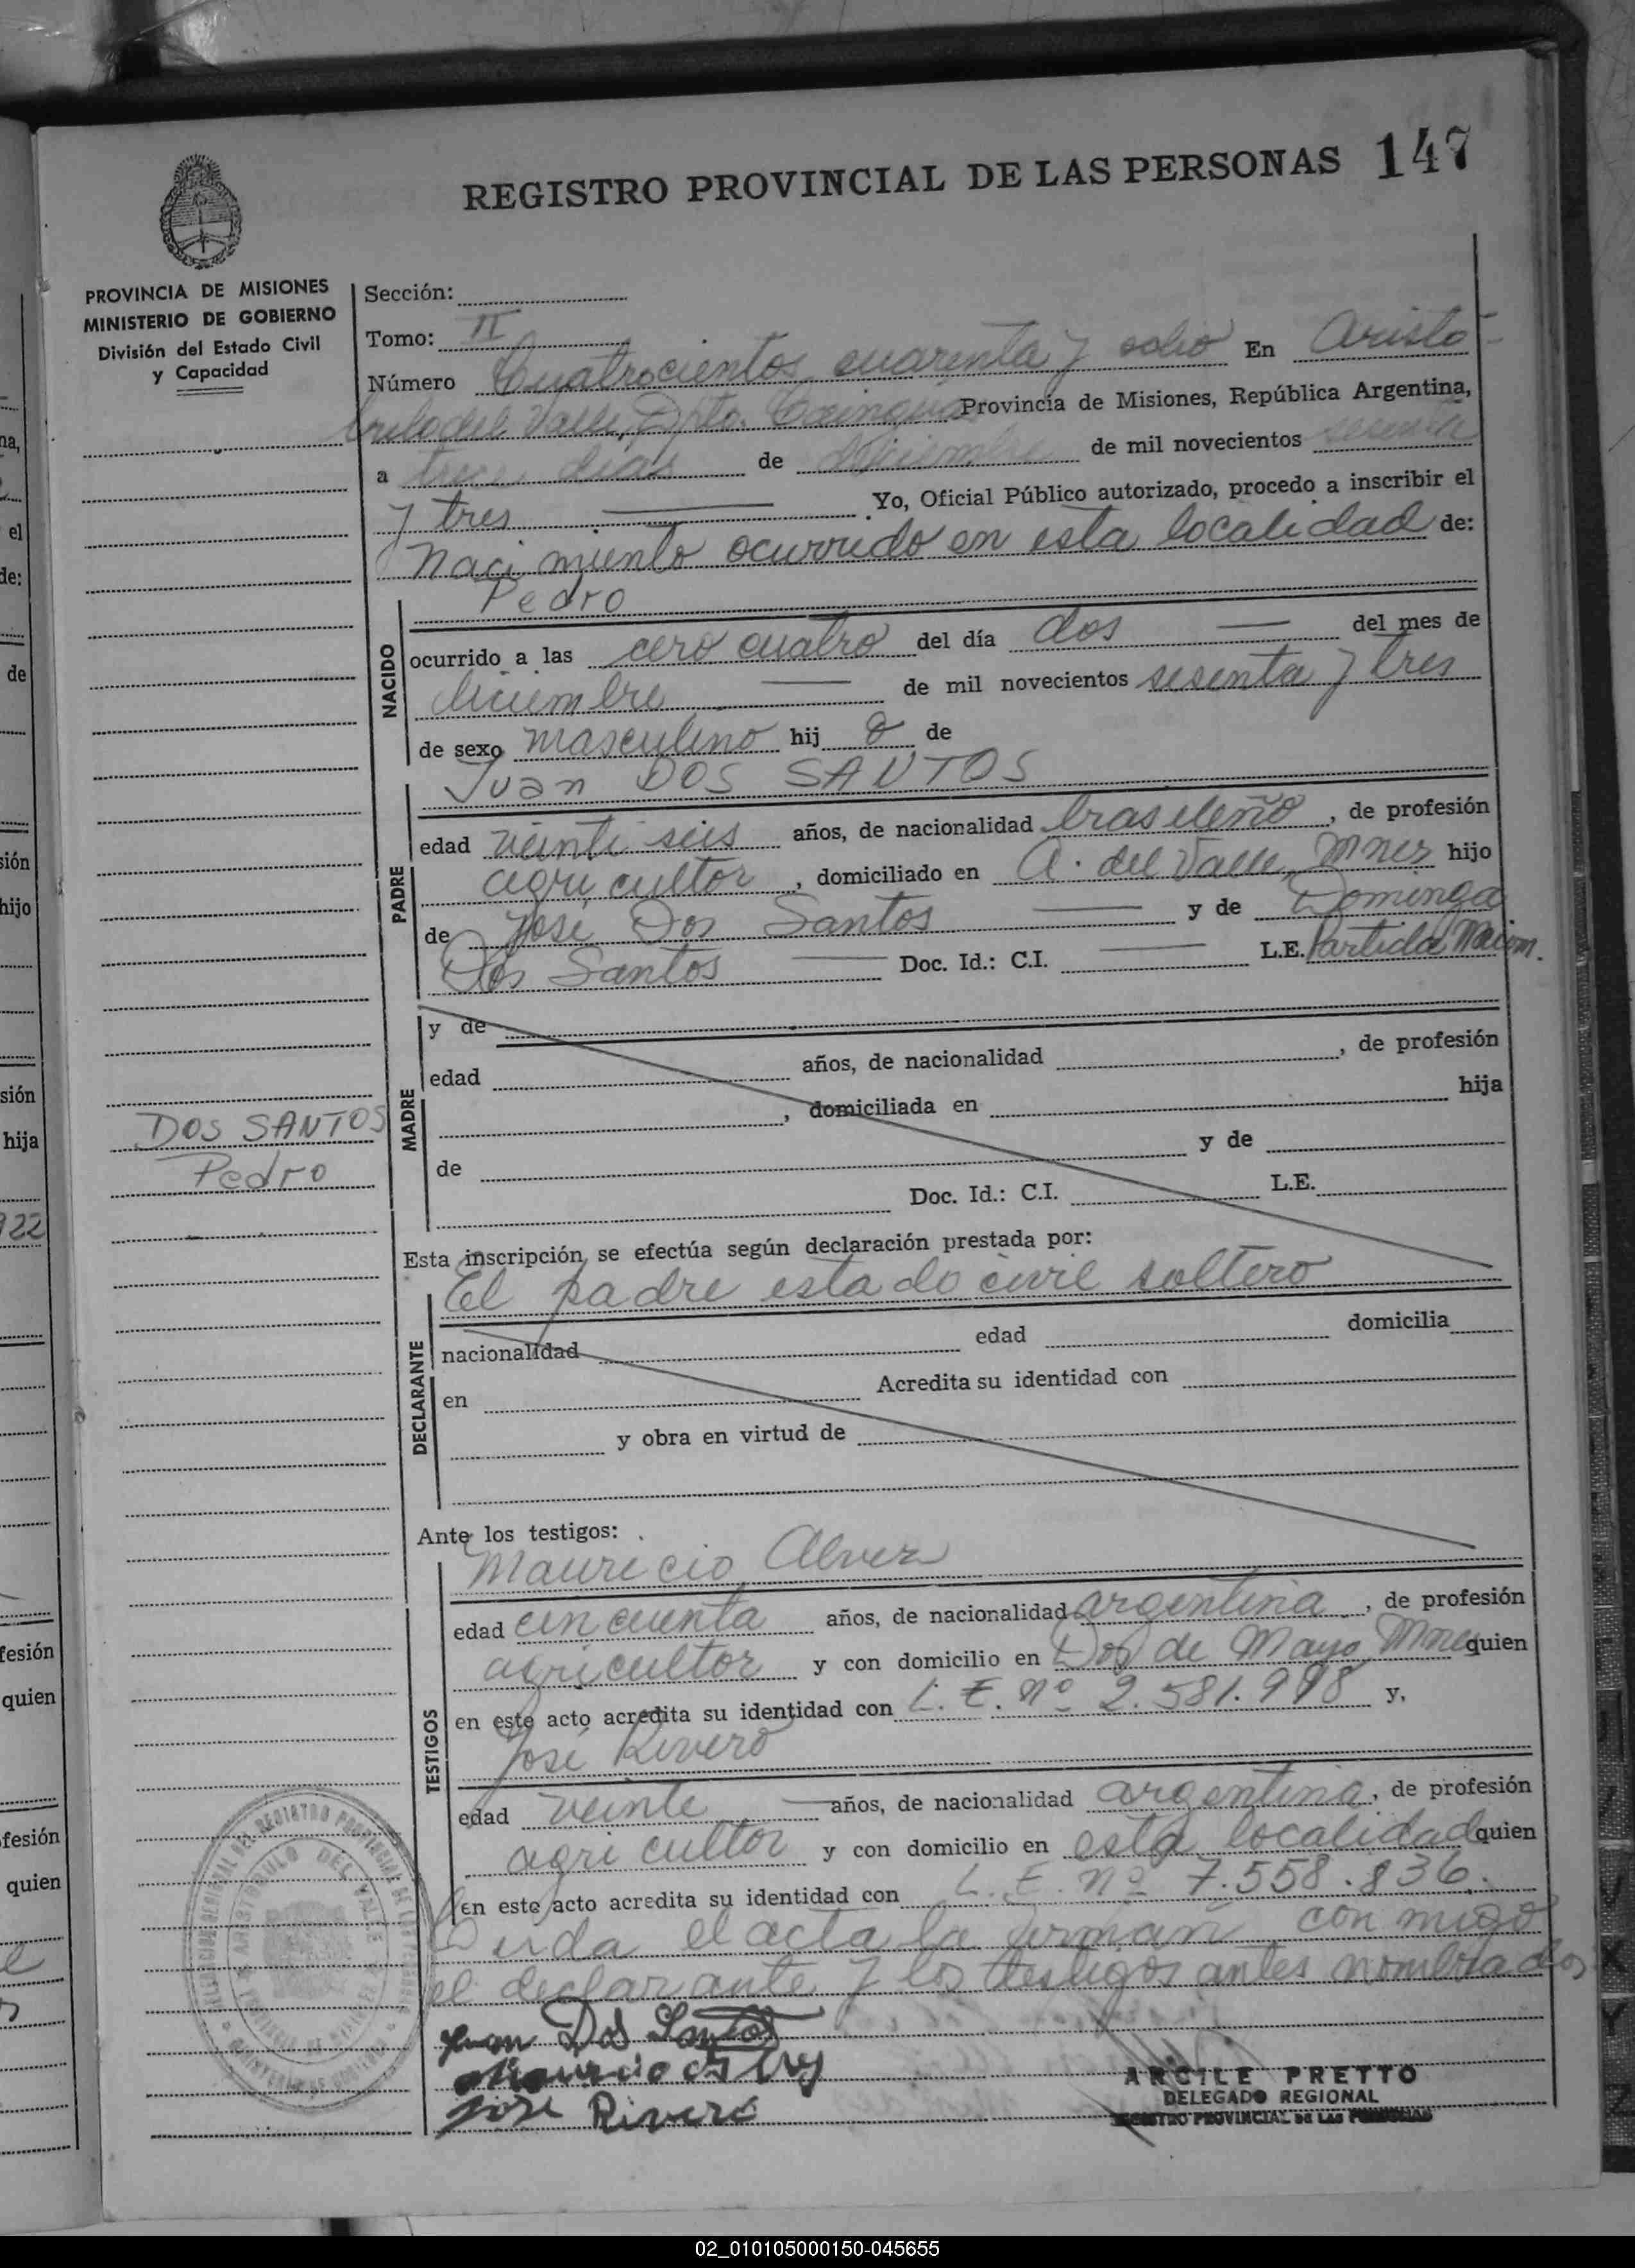 REGISTRO PROVINCIAL DE LAS PERSONAS 147
PROVINCIA DE MISIONES
MINISTERIO DE GOBIERNO
División del Estado Civil
y Capacidad
Sección:
Tomo: II
Número Cuatrocientos cuarenta y ocho En Aristó-
bulo del Valle, Dpto. Cainguás Provincia de Misiones, República Argentina,
a trece días de diciembre de mil novecientos sesenta
y tres Yo, Oficial Público autorizado, procedo a inscribir el
Nacimiento ocurrido en esta localidad de:
NACIDO
Pedro
ocurrido a las cero cuatro del día dos del mes de
diciembre de mil novecientos sesenta y tres
de sexo masculino hij o de
PADRE
Juan DOS SANTOS
edad veinti seis años, de nacionalidad brasileño, de profesión
agricultor, domiciliado en A. del Valle, Mnes hijo
de José Dos Santos y de Dominga
Dos Santos Doc. Id.: C.I. L.E. Partida Nacim.
MADRE
y de
edad años, de nacionalidad , de profesión
, domiciliada en hija
de y de
Doc. Id.: C.I. L.E.
DOS SANTOS
Pedro
Esta inscripción se efectúa según declaración prestada por:
DECLARANTE
El padre estado civil soltero
nacionalidad edad domicilia
en Acredita su identidad con
y obra en virtud de
Ante los testigos:
TESTIGOS
Mauricio Alvez
edad cincuenta años, de nacionalidad argentina, de profesión
agricultor y con domicilio en Dos de Mayo Mnes quien
en este acto acredita su identidad con L. E. nº 2.581.998 y,
José Rivero
edad veinte años, de nacionalidad argentina, de profesión
agricultor y con domicilio en esta localidad quien
en este acto acredita su identidad con L. E. nº 7.558.836.
Leída el acta la firman con migo
el declarante y los testigos antes nombrados
Juan Dos Santos
José Rivero
ARCILE PRETTO
DELEGADO REGIONAL
REGISTRO PROVINCIAL DE LAS PERSONAS
02_010105000150-045655